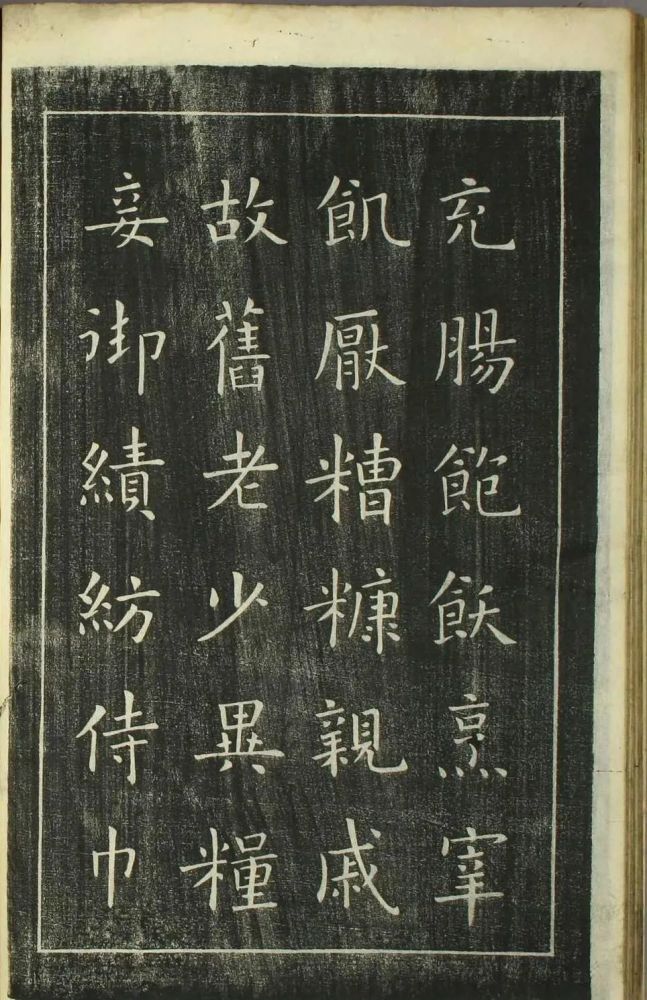 充腸飽飫烹宰
飢厭糟糠親戚
故舊老少異糧
妾御績紡侍巾